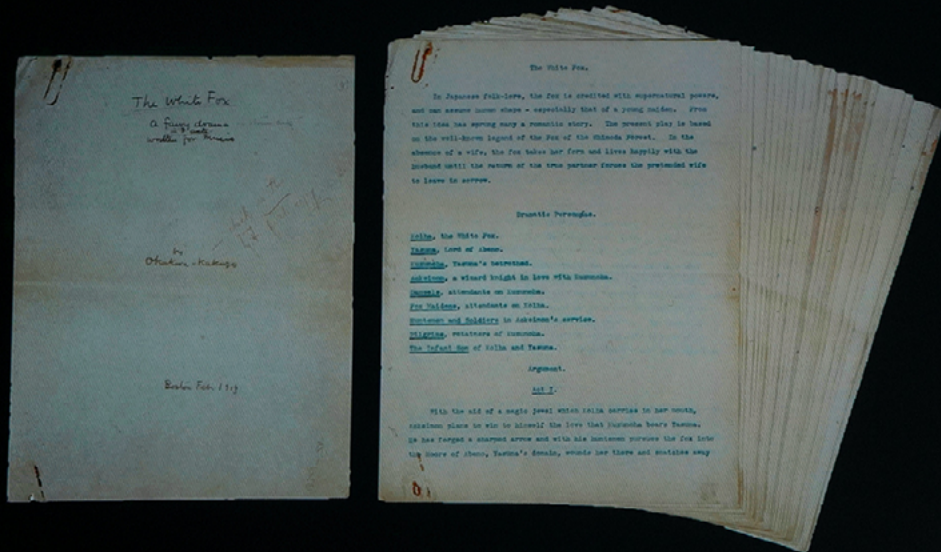 The White Fox
A fairy drama
in 3 acts
written for music
by
Okakura-Kakuzo
Boston Feb. 1913
The White Fox.
In Japanese folk-lore, the fox is credited with supernatural powers,
and can assume human shape - especially that of a young maiden. From
this idea has sprung many a romantic story. The present play is based
on the well-known legend of the Fox of the Shinoda Forest. In the
absence of a wife, the fox takes her form and lives happily with the
husband until the return of the true partner forces the pretended wife
to leave in sorrow.
Dramatis Personghe.
Kolha, the White Fox.
Yasuna, Lord of Abeno.
Kuzunoha, Yasuna's betrothed.
Ackeimon, a wizard knight in love with Kuzunoha.
Damsels, attendants on Kuzunoha.
Fox Maidens, attendants on Kolha.
Huntsmen and Soldiers in Ackeimon's service.
Pilgrims, retainers of Kuzunoha.
The Infant Son of Kolha and Yasuna.
Argument.
Act I.
With the aid of a magic jewel which Kolha carries in her mouth,
Ackeimon plans to win to himself the love that Kuzunoha bears Yasuna.
He has forged a charmed arrow and with his huntsmen pursues the fox into
the Moors of Abeno, Yasuna's domain, wounds her there and snatches away